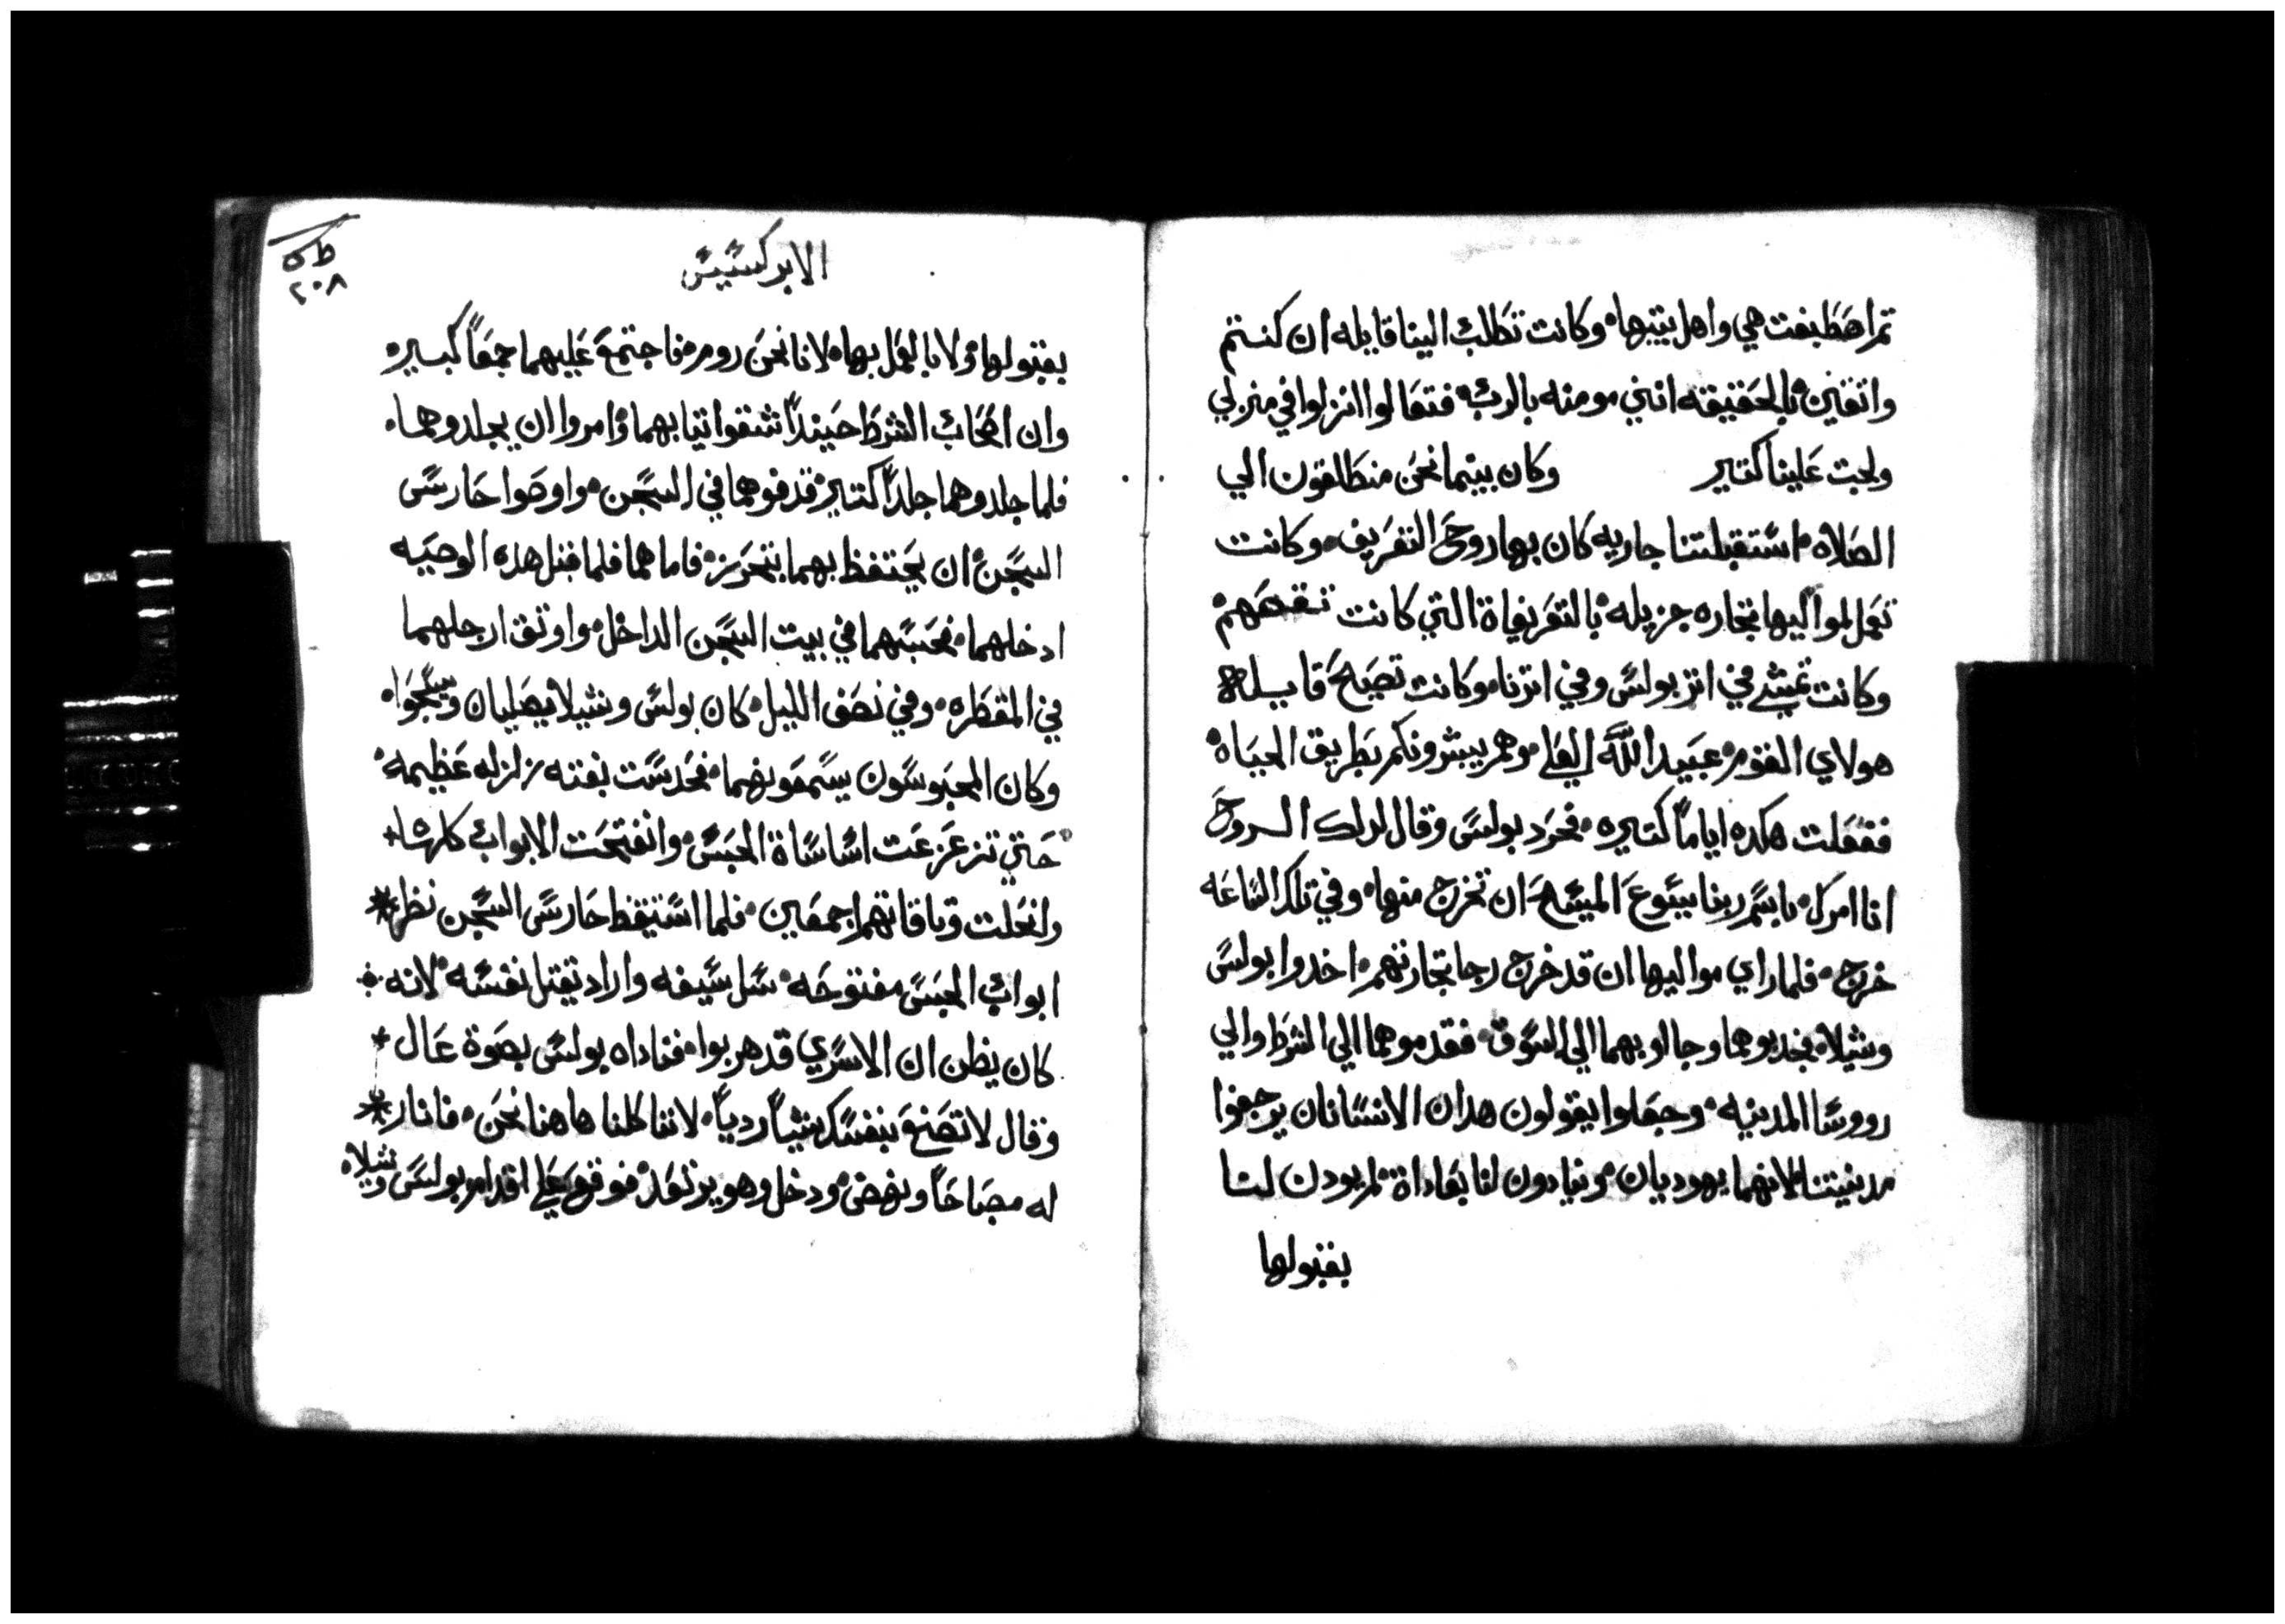 تم اصطبغت هي واهل بيتها وكانت تطلب الينا قايله ان كنتم
واتقين بالحقيقه انني مومنه بالرب فتعالوا انزلوا في منزلي
ولجت علينا كتير وكان بينما نحن منطلقون الي
الصلاه استقبلتنا جاريه كان بها روح التعريف وكانت
تعمل لمواليها تجاره جزيله بالتعريفاة التي كانت
وكانت تمشي في اتر بولس وفي اترنا وكانت تصيح قايله
هولاي القوم عبيد الله العلي وهم يبشرونكم بطريق الحياه
ففعلت هكده اياماً كتيره فحرد بولس وقال لدلك الروح
انا امرك باسم ربنا يسوع المسيح ان تخرج منها وفي تلك الساعه
خرج فلما راي مواليها ان قد خرج رجا تجارتهم اخدوا بولس
وشيلا فجدبوهما وجاوا بهما الي السوق فقدموهما الي الشرط والي
رووسا المدينه وجعلوا يقولون هدان الانسانان يرجفوا
مدينتنا لانهما يهوديان وينادون لنا بعاداة لم يودن لنا
بقبولها
ط
٢٠٨
الابركسيس
بقبولها ولا بالعمل بها لانا نحن روم فاجتمع عليهما جمعاً كبيره
وان اصحاب الشرط حينيداً شققوا تيابهما وامروا ان يجلدوهما
فلما جلدوهما جلداً كتير قدفوهما في السجن واوصوا حارس
السجن ان يحتفظ بهما بتحرير فاما هما فلما قبل هده الوصيه
ادخلهما فحبسهما في بيت السجن الداخل واوتق ارجلهما
في المقطره وفي نصف الليل كان بولس وشيلا يصليان ويسبحوا
وكان المحبوسون يسمعونهما فحدست بغته زلزله عظيمه
حتي تزعزعت اساساة الحبس وانفتحت الابواب كلها
وانحلت وتاقاتهم اجمعين فلما استيقظ حارس السجن نظر
ابواب الحبس مفتوحه سل سيفه واراد يقتل نفسه لانه
كان يظن ان الاسري قد هربوا فناداه بولس بصوة عال
وقال لا تصنع بنفسك شياً ردياً لاننا كلنا هاهنا نحن فانار
له مصباحاً ونهض ودخل وهو يرتعد فوقع علي اقدام بولس وشيلا